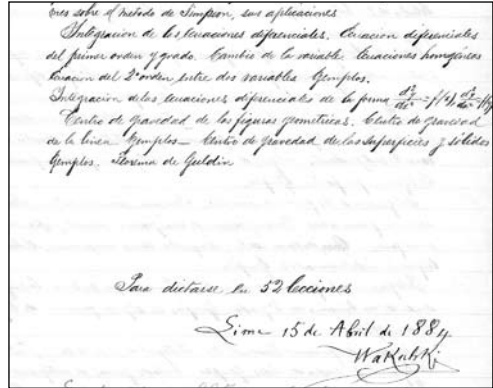 nes sobre el método de Simpson, sus aplicaciones
Integracion de las ecuaciones diferenciales. Ecuacion diferenciales
del primer orden y grado. Cambio de la variable. Ecuaciones homogéneas
Ecuacion del 2º orden entre dos variables Gemplos.
Integracion de las ecuaciones diferenciales de la forma
Centro de gravedad de las figuras geometricas. Centro de gravedad
de la linea Gemplos — Centro de gravedad de las superficies y sólidos
Gemplos. Teorema de Guldin
Para dictarse en 52 lecciones
Lima 15 de Abril de 1884